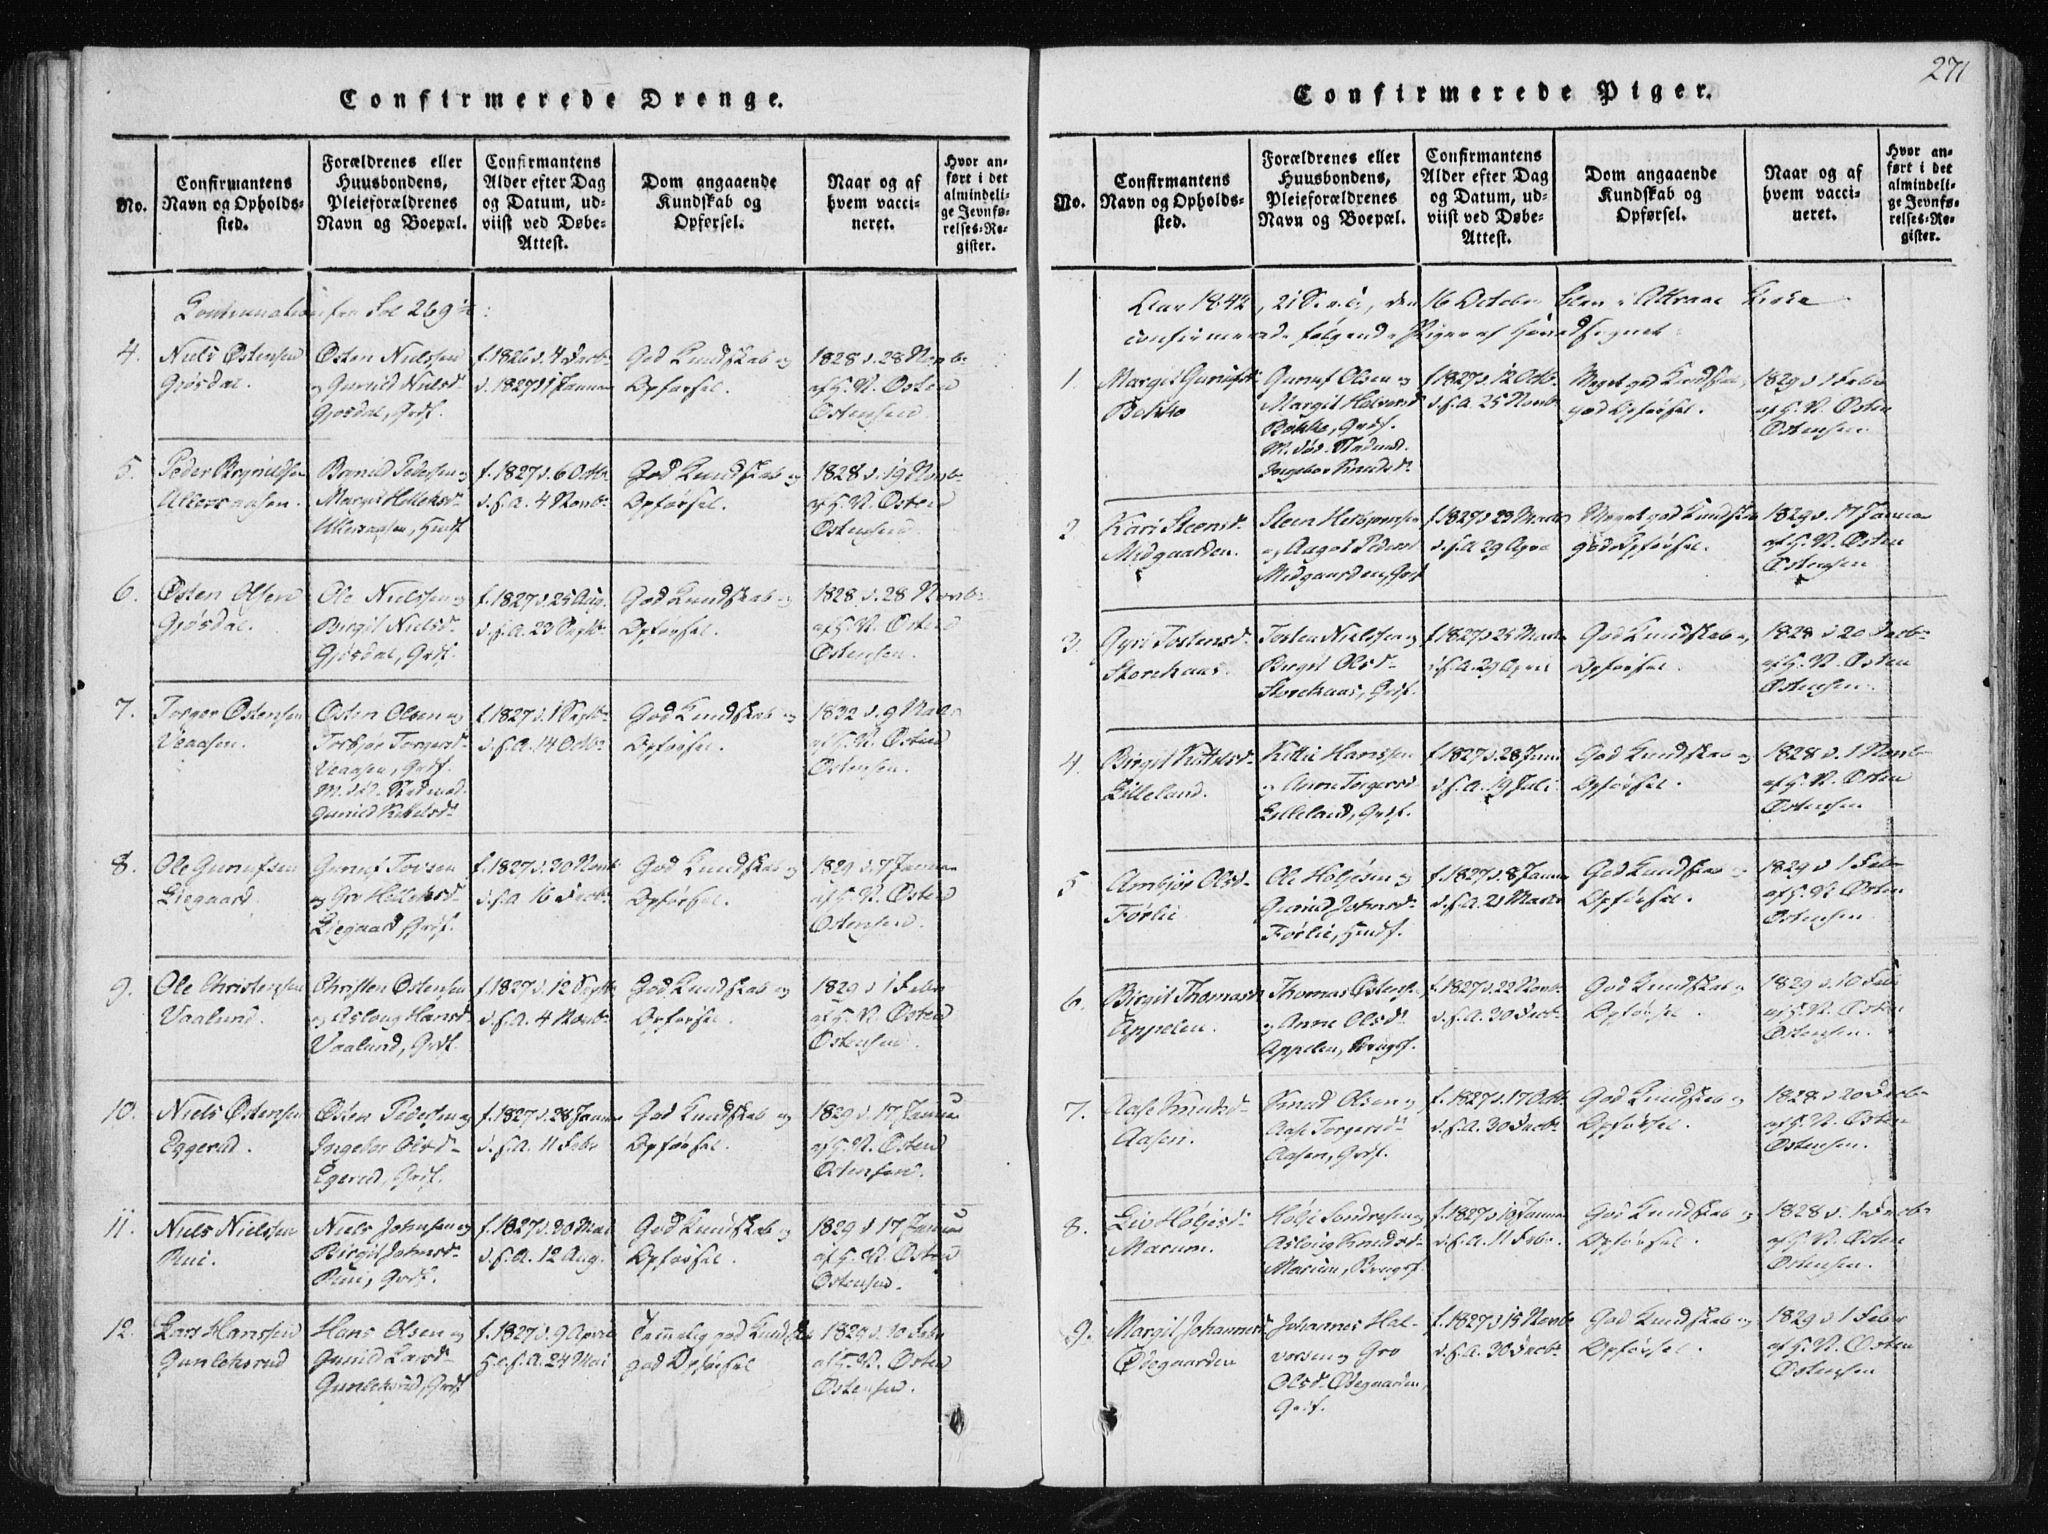 Confirmerede Drenge.
No.
Confirmantens
Navn og Opholds-
sted.
Forældrenes eller
Huusbondens,
Pleieforældrenes
Navn og Boepæl.
Confirmantens
Alder efter Dag
og Datum, ud-
viist ved Døbe-
Attest.
Dom angaaende
Kundskab og
Opførsel.
Naar og af
hvem vacci-
neret.
Hvor an-
ført i det
almindeli-
ge Jevnfø-
relses-Re-
gister.
Continuation fra Fol 269
4.
Niels Østensen
Gjøsdal.
Østen Nielssen
og Gunild Nielsd
Gjøsdal, Grdf.
f. 1826 d. 4 Decbr
d. 1827 d 1 Januar
God Kundskab og
Opførsel.
1828 d. 28 Novb.
af H. N. Østen
Østensen.
5.
Peder Brynildsen
Brynild Pedersen og
Margit Helleksd.
f. 1827 d. 6 Octbr
d. s. A. 4 Novbr
God Kundskab og
Opførsel.
1828 d. 19 Novb.
af H. N. Østen
Østensen.
6.
Østen Olsen
Gjøsdal.
Ole Nielssen og
Birgit Nielsd.
Gjøsdal, Grdf.
f. 1827 d. 25 Aug.
d. s. A. 23 Septbr
God Kundskab og
Opførsel.
1828 d. 28 Novb.
af H. N. Østen
Østensen.
7.
Torger Østensen
Vaasen.
Østen Olsen og
Torbjør Torgersd.
Vaasen, Grdf.
M. død. Stedmod.
Gunild Kittelsd.
f. 1827 d. 1 Septbr
d. s. A. 14 Octbr
God Kundskab og
Opførsel.
1832 d. 9
af H. N. Østen
Østensen.
8.
Ole Gunufsen
Liegaard.
Gunuf Tovsen
og Gro Helleksd.
Liegaard, Grdf.
f. 1827 d. 20 Novb
d. s. A. 16 Decbr
God Kundskab og
Opførsel.
1829 d. 7 Januar
af H. N. Østen
Østensen.
9.
Ole Christensen
Vaalund.
Christen Østensen
og Asloug Hansd.
Vaalund, Grdf.
f. 1827 d. 12 Septbr
d. s. A. 4 Novbr
God Kundskab og
Opførsel.
1829 d 1 Febr
af H. N. Østen
Østensen.
10.
Niels Østensen
Eggerud.
Østen Pedersen og
Ingebor Olsd.
Egerud, Grdf.
f. 1827 d. 28 Januar
d. s. A. 11 Febr
God Kundskab og
Opførsel.
1829 d. 17 Januar
af H. N. Østen
Østensen.
11.
Niels Nielssen
Rui.
Niels Johnsen og
Birgit Johnsd.
Rui, Grdf.
f. 1827 d. 30 Mai
d. s. A. 12 Aug.
God Kundskab og
Opførsel.
1829 d 17 Januar
af H. N. Østen
Østensen.
12.
Lars Hanssen
Gunleksrud
Hans Olsen og
Gunild Larsd.
Gunleksrud, Grdf.
f. 1827 d. 9 April
H. s. A. 24 Mai
Temmelig god Kundsk
god Opførsel
1829 d. 10 Febr
af H. N. Østen
Østensen.
271
Confirmerede Piger.
No.
Confirmantens
Navn og Opholds-
sted.
Forældrenes eller
Huusbondens,
Pleieforældrenes
Navn og Boepæl.
Confirmantens
Alder efter Dag
og Datum, ud-
viist ved Døbe-
Attest.
Dom angaaende
Kundskab og
Opførsel.
Naar og af
hvem vacci-
neret.
Hvor an-
ført i det
almindeli-
ge Jevnfø-
relses-Re-
gister.
Aar 1842, 21 S. e. T., den 16 October blev i Attraae Kirke
confirmerede følgende Piger af Hovedsognet:
1.
Margit Gunufsd.
Bakke
Gunuf Olsen og
Margit Halvorsd
Bakke, Grdf.
M. død. Stedmod.
Ingebor Knudsd.
f. 1827 d. 12 Octb.
d. s. A. 25 Novb.
Meget god Kundskab,
god Opførsel.
1829 d 1 Febr
af H. N. Østen
Østensen.
2.
Kari Steensd.
Midgaarden.
Steen Herbjørnsen
og Aagot Pedersd
Midgaarden, Grdf
f. 1827 d 23 Marts
d. s. A 29 April
Meget god Kundskab
god Opførsel.
1829 d. 17 Januar
af H. N. Østen
Østensen
3.
Gyri Tostensd.
Storekaas.
Tosten Nielssen og
Birgit Olsd.
Storekaas, Grdf.
f. 1827 d 25 Marts
d. s. A. 29 April
God Kundskab og
Opførsel.
1828 d 20 Decbr
af H. N. Østen
Østensen.
4.
Birgit Kittilsd.
Lilleland.
Kittil Hanssen
og Anne Torgersd
Lilleland, Grdf.
f. 1827 d. 28 Juni
d. s. A. 19 Juli.
God Kundskab og
Opførsel.
1828 d. 1 Novb
af H. N. Østen
Østensen
5
Anbjør Olsd.
Førlie
Ole Høljesen og
Gunild Johnsd.
Førlie, Husf.
f. 1827 d 8 Januar
d. s. A. 21 Marts
God Kundskab og
Opførsel.
1829 d 1 Febr
af H. N. Østen
Østensen.
6.
Birgit Thomasd
Appelen.
Thomas Østens.
og Anne Olsd.
Appelen, Brugsf.
f. 1827 d. 22 Novb.
d. s. A. 30 Decb.
God Kundskab og
Opførsel.
1829 d. 10 Febr
af H. N. Østen
Østensen.
7.
Aase Knudsd.
Aasen.
Knud Olsen og
Aase Torgersd.
Aasen, Grdf.
f. 1827 d. 17 Octb.
d. s. A. 30 Decb.
God Kundskab og
Opførsel.
1828 d 20 Decb.
af H. N. Østen
Østensen.
8.
Liv Høljesd.
Marum.
Hølje Sondresen og
Aslaug Knudsd.
Marum, Brugsf.
f. 1827 d 19 Januar
d. s. A. 11 Febr.
God Kundskab og
Opførsel.
1828 d. 1 Decb.
af H. N. Østen
Østensen.
9.
Margit Johannesd
Ødegaarden
Johannes Hal-
vorsen og Gro
Olsd. Ødegaarden,
Grdf.
f. 1827 d 15 Novb
d. s. A. 30 Decb.
God Kundskab og
Opførsel.
1829 d 1 Febr
af H. N. Østen
Østensen